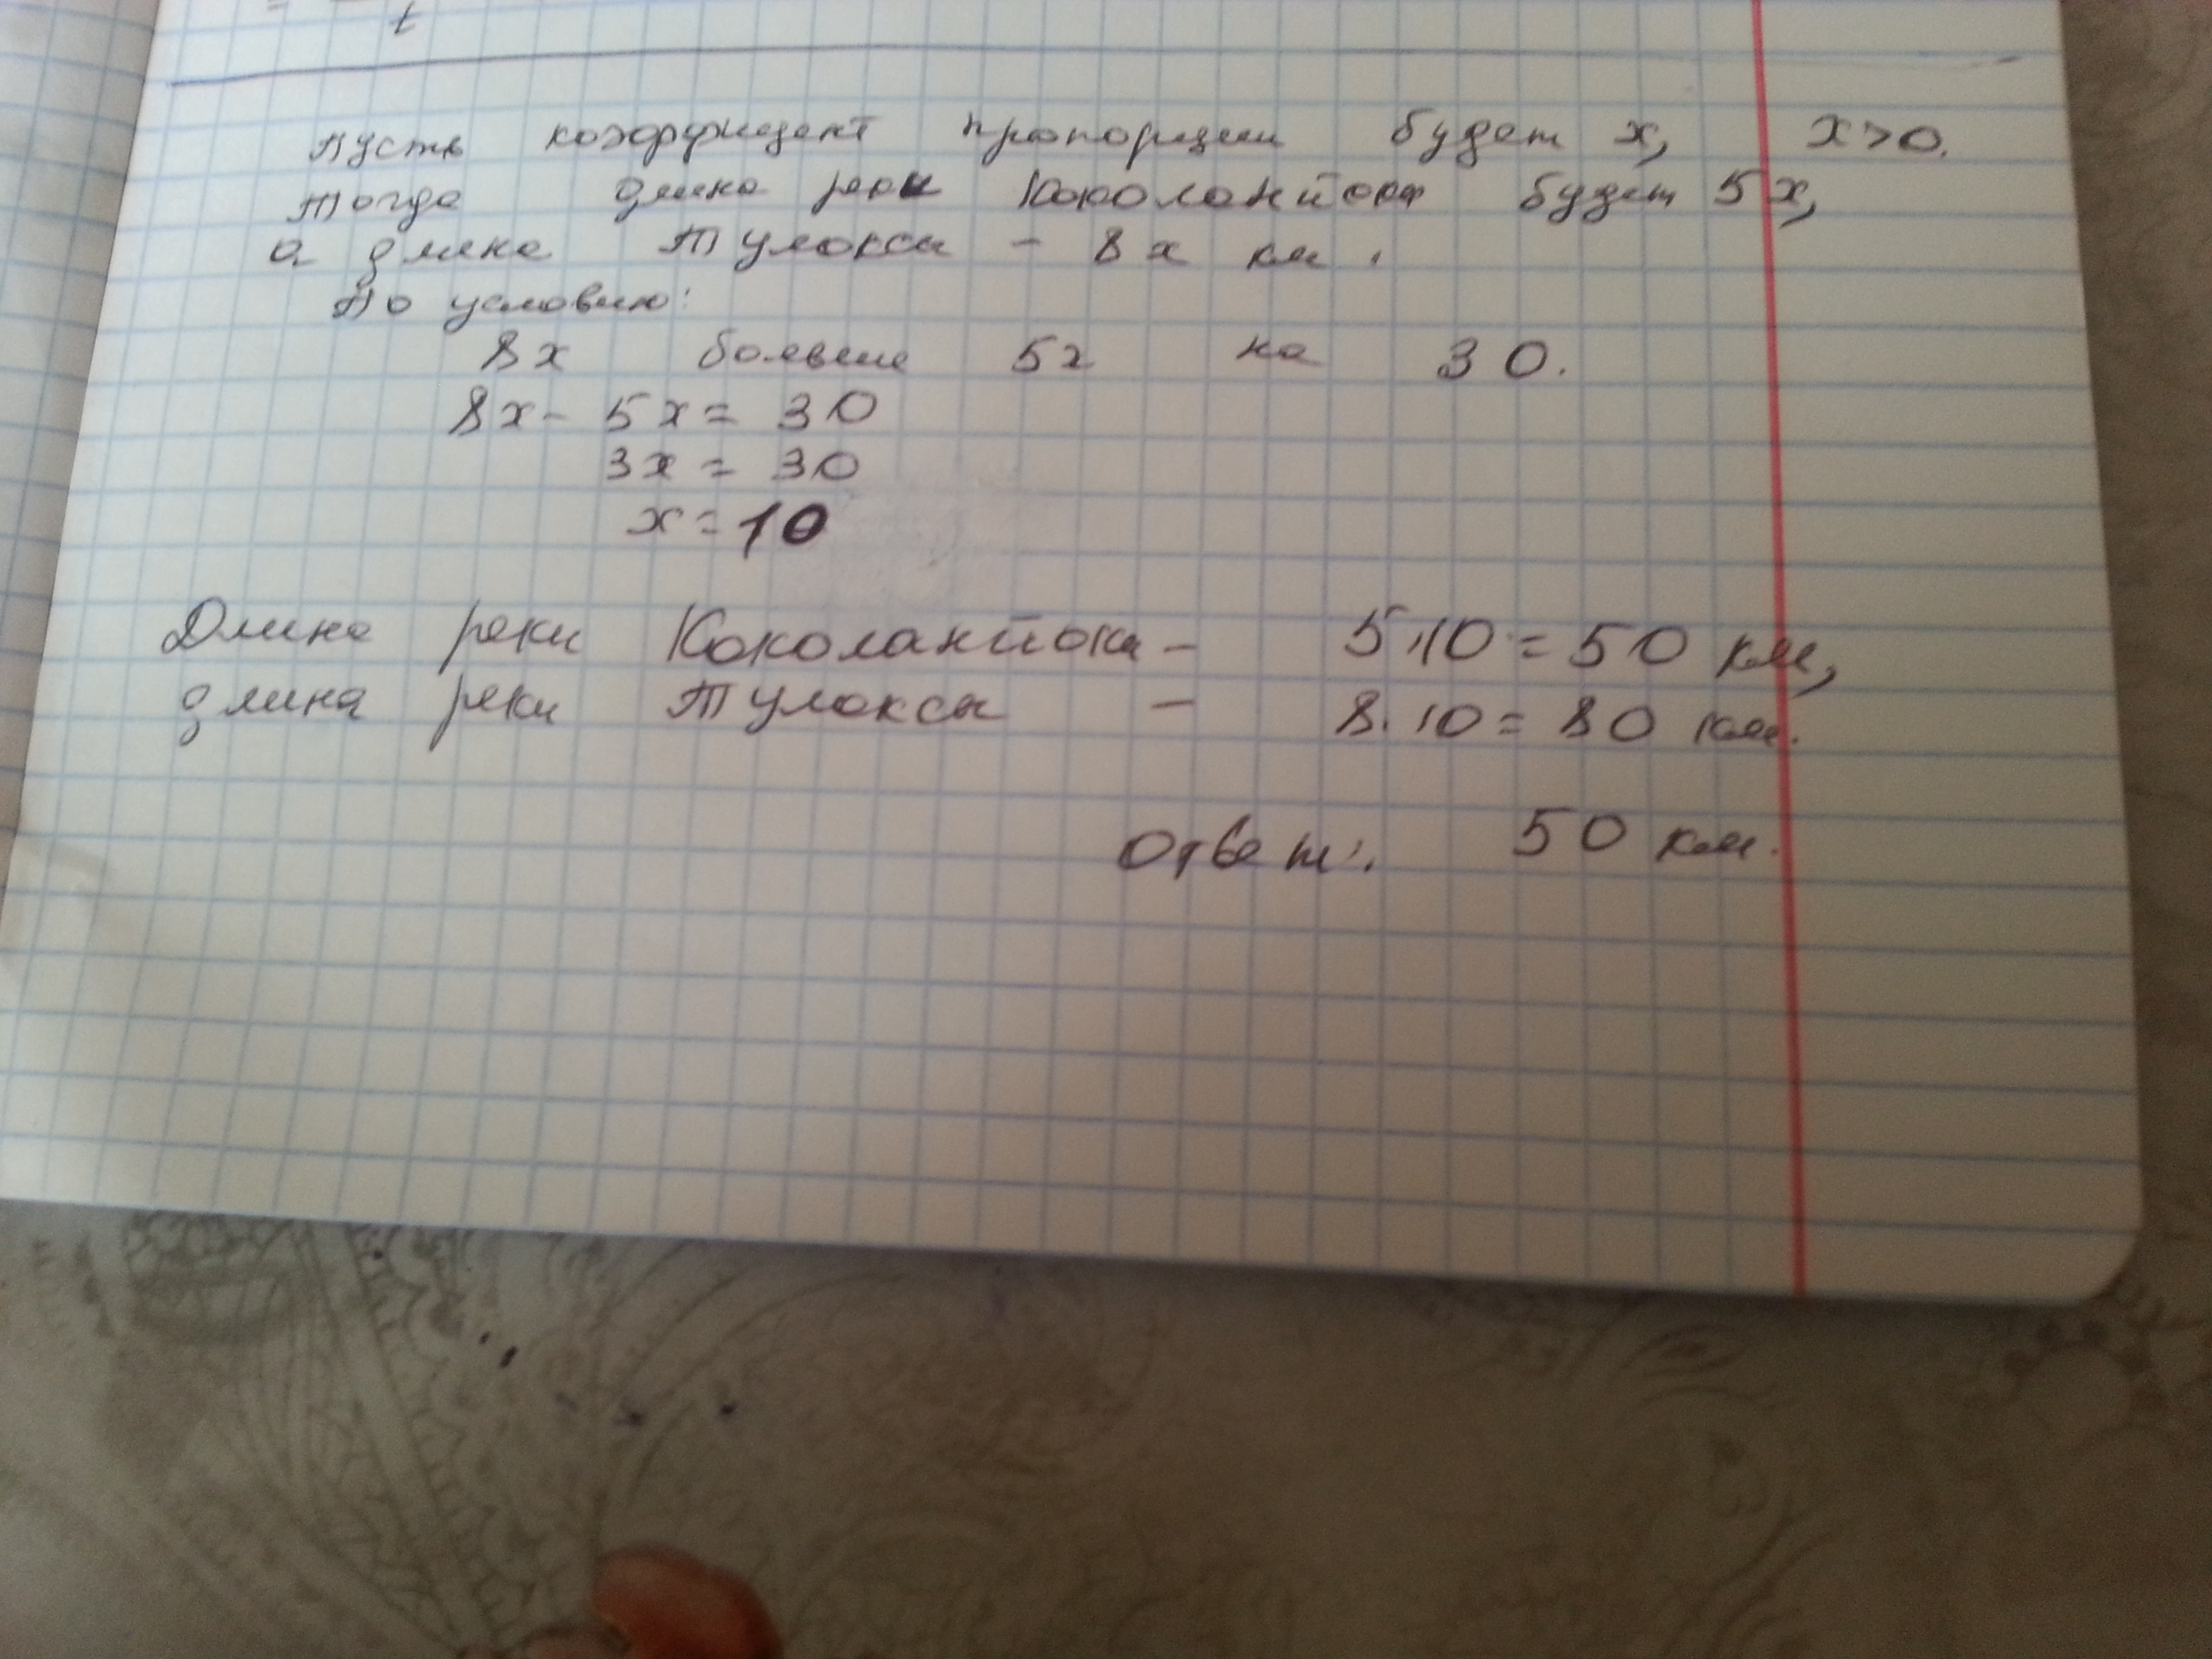 = t
Пусть коэффициент пропорции будет x, x>0.
Тогда длина реки Коколанйоки будет 5x,
а длина Тулоксы - 8x км.
По условию:
8x больше 5x на 30.
8x - 5x = 30
3x = 30
x = 10
Длина реки Коколанйоки - 5·10 = 50 км,
длина реки Тулоксы - 8·10 = 80 км.
Ответ: 50 км.